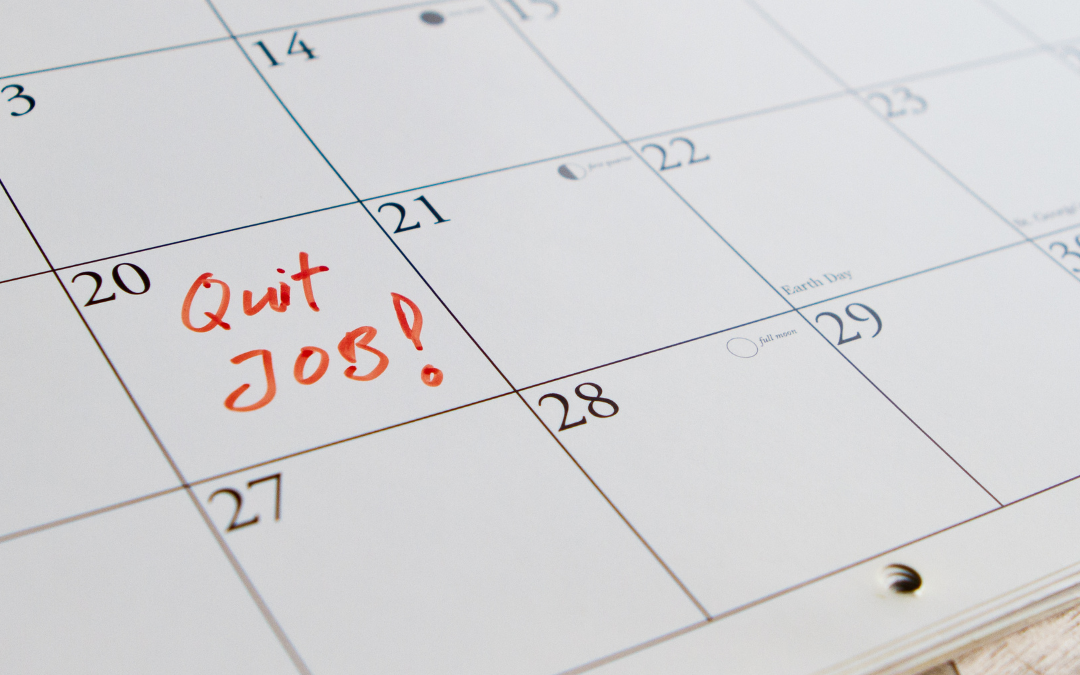 14
15
3
23
22
21
St. George's
20
Quit
JOB!
Earth Day
29
full moon
28
27